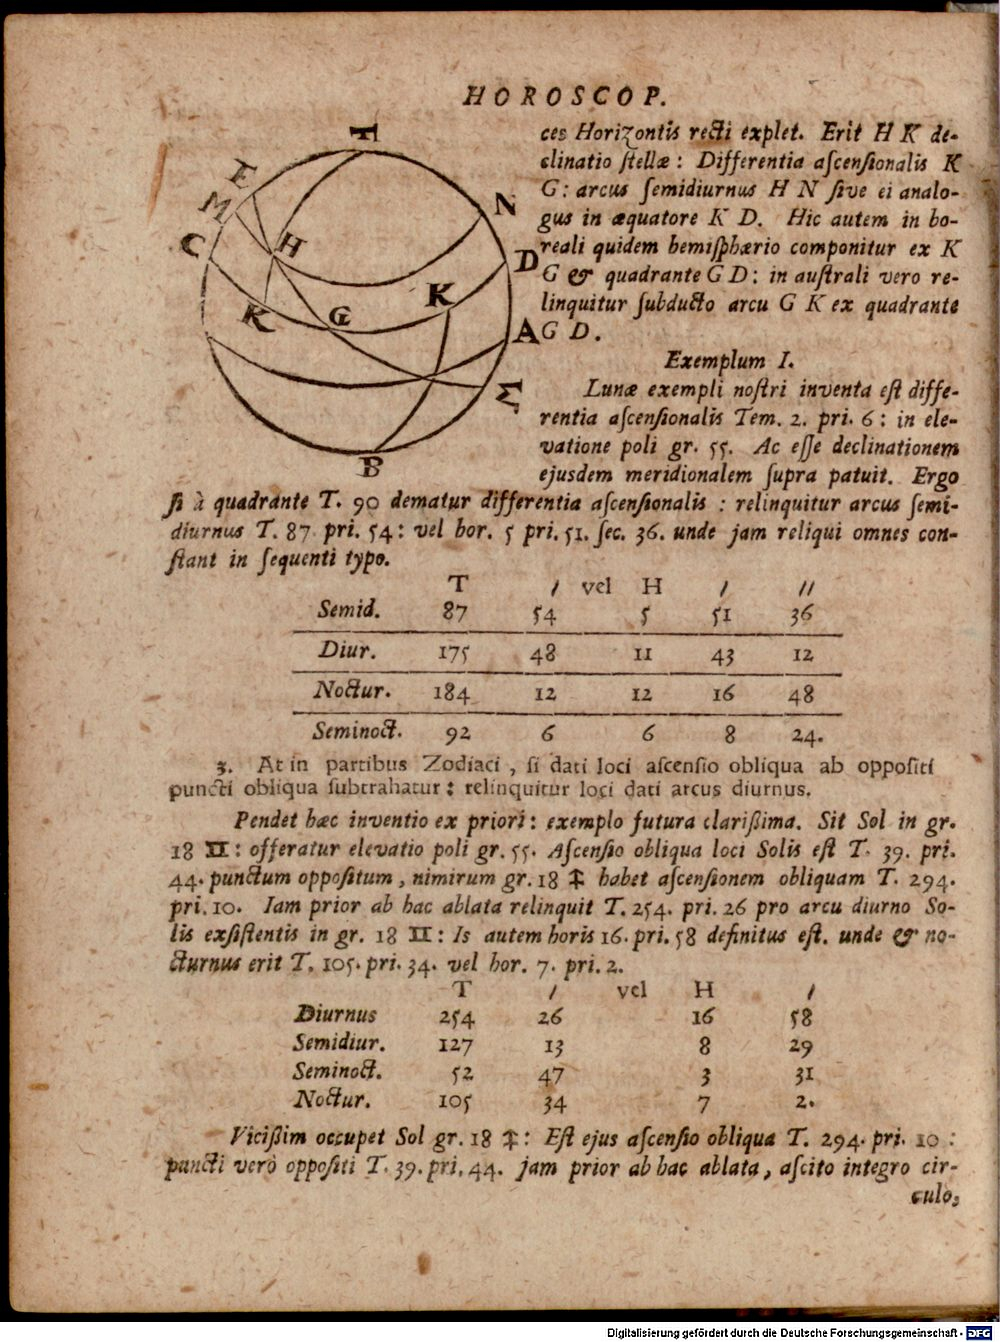 HOROSCOP.
T
E
M
C
H
N
D
K
G
K
A
Σ
B
ces Horizontis recti explet. Erit H K de-
clinatio ſtellæ: Differentia aſcenſionalis K
G: arcus ſemidiurnus H N ſive ei analo-
gus in æquatore K D. Hic autem in bo-
reali quidem hemiſphærio componitur ex K
G & quadrante G D: in auſtrali vero re-
linquitur ſubducto arcu G K ex quadrante
G D.
Exemplum I.
Lunæ exempli noſtri inventa eſt diffe-
rentia aſcenſionalis Tem. 2. pri. 6: in ele-
vatione poli gr. 55. Ac eſſe declinationem
ejusdem meridionalem ſupra patuit. Ergo
ſi à quadrante T. 90 dematur differentia aſcenſionalis: relinquitur arcus ſemi-
diurnus T. 87 pri. 54: vel hor. 5 pri. 51. ſec. 36. unde jam reliqui omnes con-
ſtant in ſequenti typo.
T / vel H / //
Semid. 87 54 5 51 36
Diur. 175 48 11 43 12
Noctur. 184 12 12 16 48
Seminoct. 92 6 6 8 24.
3. At in partibus Zodiaci, ſi dati loci aſcenſio obliqua ab oppoſiti
puncti obliqua ſubtrahatur: relinquitur loci dati arcus diurnus.
Pendet hæc inventio ex priori: exemplo futura clarißima. Sit Sol in gr.
18 ♊: offeratur elevatio poli gr. 55. Aſcenſio obliqua loci Solis eſt T. 39. pri.
44. punctum oppoſitum, nimirum gr. 18 ♐ habet aſcenſionem obliquam T. 294.
pri. 10. Iam prior ab hac ablata relinquit T. 254. pri. 26 pro arcu diurno So-
lis exſiſtentis in gr. 18 ♊: Is autem horis 16. pri. 58 definitus eſt. unde & no-
cturnus erit T. 105. pri. 34. vel hor. 7. pri. 2.
T / vel H /
Diurnus 254 26 16 58
Semidiur. 127 13 8 29
Seminoct. 52 47 3 31
Noctur. 105 34 7 2.
Vicißim occupet Sol gr. 18 ♐: Eſt ejus aſcenſio obliqua T. 294. pri. 10:
puncti verò oppoſiti T. 39. pri. 44. jam prior ab hac ablata, aſcito integro cir-
culo,
Digitalisierung gefördert durch die Deutsche Forschungsgemeinschaft - DFG